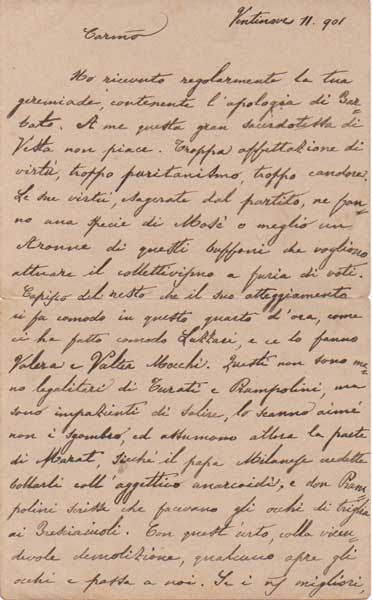 Ventinove 11. 901
Carmo
Ho ricevuto regolarmente la tua
geremiade, contenente l'apologia di Bar=
bato. A me questa gran sacerdotessa di
Vesta non piace. Troppa affettazione di
virtù, troppo puritanismo, troppo candore.
Le sue virtù, esagerate dal partito, ne fan=
no una specie di Mosè o meglio un
Aronne di questi buffoni che vogliono
attuare il collettivismo a furia di voti.
Capisco del resto che il suo atteggiamento
ci fa comodo in questo quarto d'ora, come
ci ha fatto comodo Lazzari, e ce lo fanno
Valera e Valter Mocchi. Questi non sono me=
no legalitari di Turati e Prampolini, ma
sono impazienti di salire, lo
non i ed assumono allora la parte
di Marat, sicchè il papa Milanese credette
bollarli coll'aggettivo anarcoidi, e don Pram=
polini scrisse che facevano gli occhi di triglia
ai Bresciainoli. Con quest'urto, colla vicen=
devole demolizione, qualcuno apre gli
occhi e passa a noi. Se i migliori,